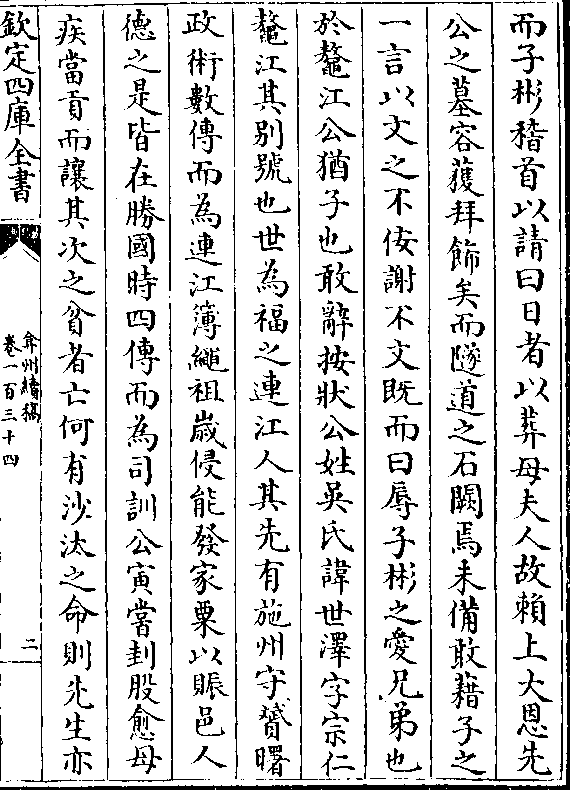 而子彬稽首以請曰日者以葬母夫人故賴上大恩先
公之墓容獲拜飾矣而隧道之石闕焉未備敢藉子之
一言以文之不佞謝不文既而曰辱子彬之愛兄弟也
於鼇江公猶子也敢辭按狀公姓吳氏諱世澤字宗仁
鼇江其別號也世為福之連江人其先有施州守贇曙
政術數傳而為連江簿繩祖歲侵能發家粟以賑邑人
德之是皆在勝國時四傳而為司訓公寅嘗刲股愈母
疾當貢而讓其次之貧者亡何有沙汰之命則先生亦
欽定四庫全書
弇州續稿
卷一百三十四
二